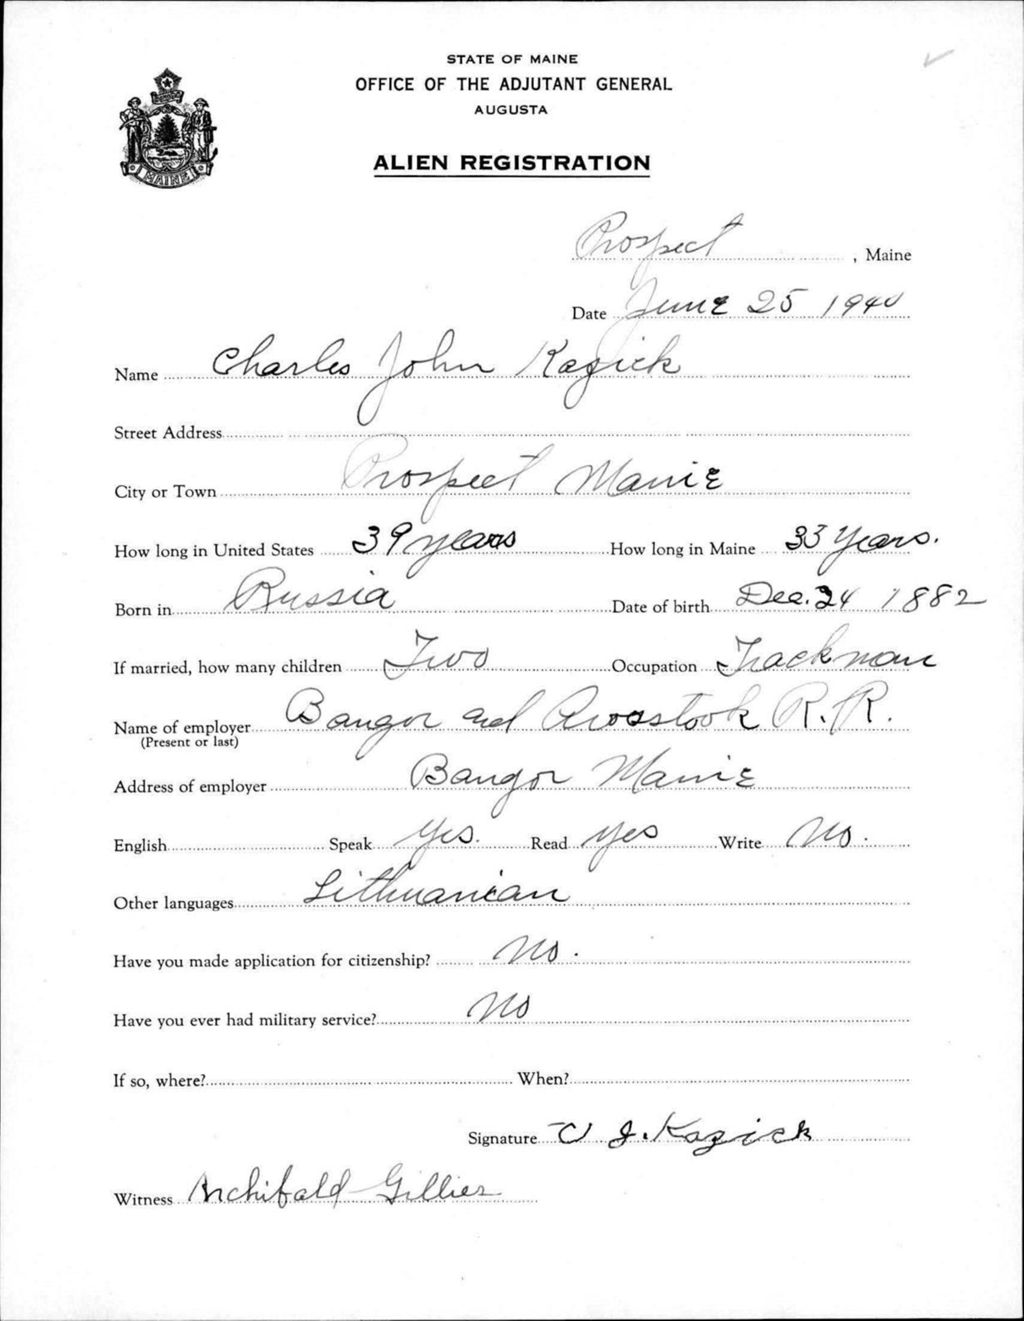 STATE OF MAINE
OFFICE OF THE ADJUTANT GENERAL
AUGUSTA
ALIEN REGISTRATION
MAINE
Prospect, Maine
Date June 25 1940
Name Charles John Kazick
Street Address
City or Town Prospect Maine
How long in United States 39 years How long in Maine 33 Years.
Born in Russia Date of birth Dec. 24 1882
If married, how many children Two Occupation Trackman
Name of employer Bangor and Aroostook R.R.
(Present or last)
Address of employer Bangor Maine
English Speak Yes. Read Yes Write No.
Other languages Lithuanian
Have you made application for citizenship? No.
Have you ever had military service? No
If so, where? When?
Signature C J. Kazick
Witness Archibald Gillies